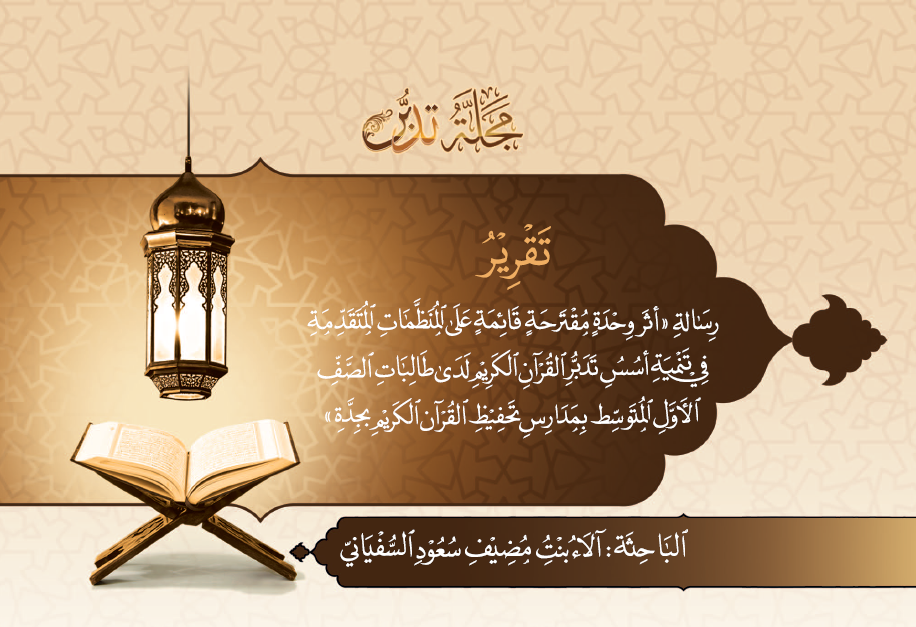 مَجَلَّةُ تَدَبُّر
تَقْرِيْرُ
رِسَالةِ «أثَر وِحْدَةٍ مُقْتَرَحَةٍ قَائِمَةٍ عَلَىٰ المُنَظَّمَاتِ المُتَقَدِّمَةِ
فِي تَنْمِيَةِ أسُسُ تَدَبُّرِ القُرْآنِ الْكَرِيْمِ لَدَى طَالِبَاتِ الصَّفِّ
الأَوَّلِ المُتَوَسِّط بِمَدَارِسِ تَحْفِيْظِ القُرْآنِ الْكَرِيْمِ بِجِدَّةِ»
البَاحِثَة: آلَاءُ بُنْتُ مُضِيْفِ سُعُوْدِ السُّفْيَانِيّ